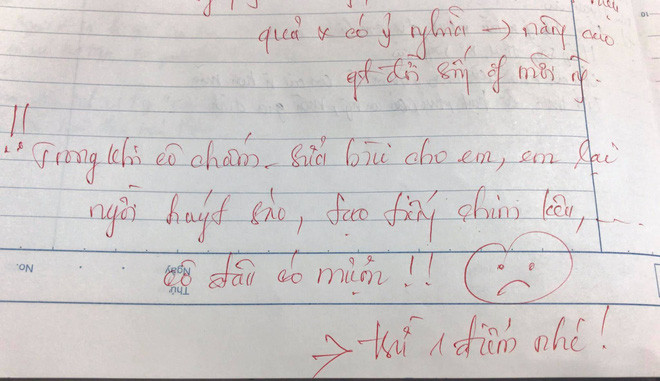 quả & có ý nghĩa → nâng cao
gt đời sống of mỗi ng.
!!
Trong khi cô chấm, sửa bài cho em, em lại
ngồi huýt sáo, tạo tiếng chim kêu, ....
cô đâu có muộn !!
→ trừ 1 điểm nhé !
No.
Thứ
Ngày